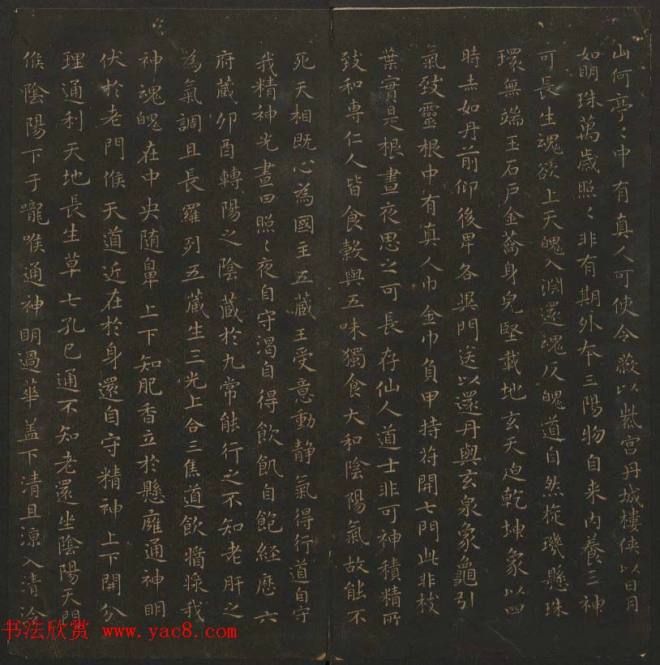 山何亭〻中有真人可使令蔽以紫宫丹城樓侠以日月
如明珠萬歲照〻非有期外夲三陽物自来内養三神
可長生魂欲上天魄入淵還魂反魄道自然旋璣懸珠
環無端玉石戶金蘥身完堅載地玄天迫乾坤象以四
時赤如丹前仰後卑各異門送以還丹與玄泉象龜引
氣致靈根中有真人巾金巾負甲持符開七門此非枝
葉實是根晝夜思之可長存仙人道士非可神積精所
致和專仁人皆食穀與五味獨食大和陰陽氣故能不
死天相既心為國主五藏王受意動静氣得行道自守
我精神光晝日照〻夜自守渴自得飲飢自飽經歷六
府藏卯酉轉陽之陰藏於九常能行之不知老肝之
為氣調且長羅列五藏生三光上合三焦道飲醬漿我
神魂魄在中央随鼻上下知肥香立於懸廱通神明
伏於老門候天道近在於身還自守精神上下開分
理通利天地長生草七孔已通不知老還坐陰陽天門
候陰陽下于嚨喉通神明過華盖下清且涼入清泠
书法欣赏 www.yac8.com